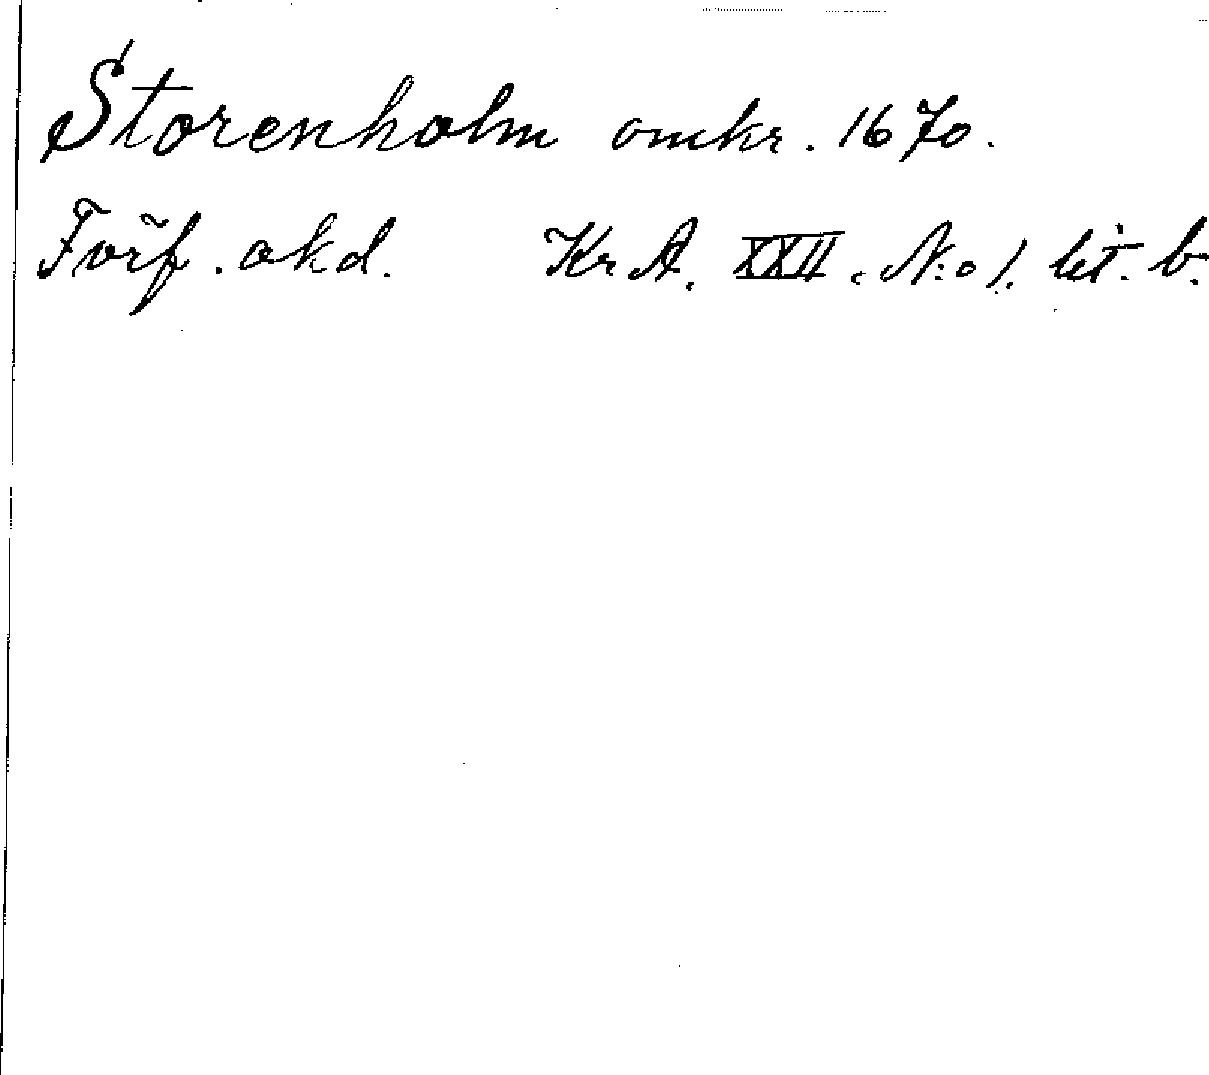 Storenholm omkr. 1670.
Förf. okd. Kr A. XXII. N:o 1. lit. b.